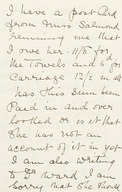 I have a post Card
from Miss Salmond
reminding me that
I owe her 11/8 for
the Towels and 6d for
Carriage 12/2 in all
has this sum been
Paid in and over
looked or is it that
She has not an
account of it in yet
I am also writing
to Dr Ward I am
sorry that She